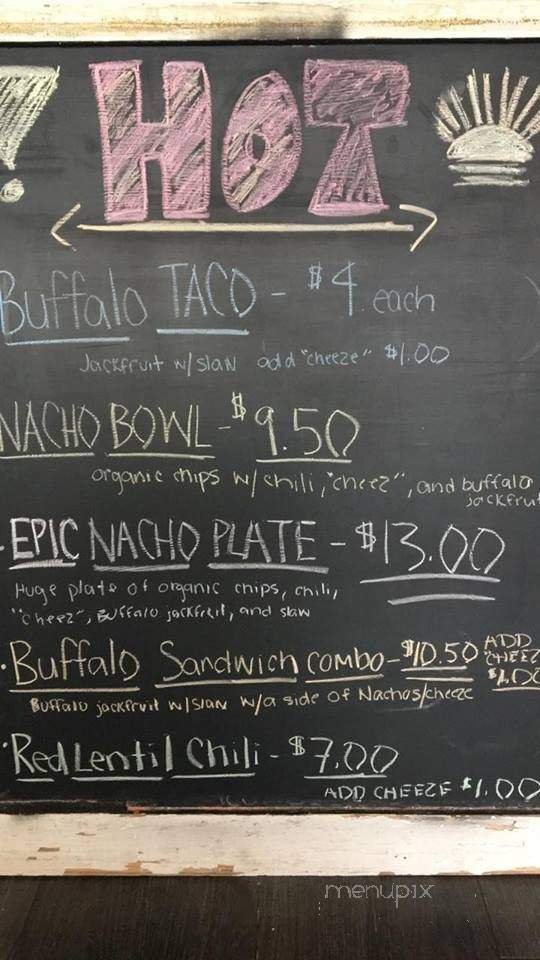 ! HOT
Buffalo TACO - $4 each
Jackfruit w/slaw add "cheeze" $1.00
NACHO BOWL - $9.50
organic chips w/ chili, "cheez", and buffalo
jackfruit
·EPIC NACHO PLATE - $13.00
Huge plate of organic chips, chili,
"cheez", Buffalo jackfruit, and slaw
·Buffalo Sandwich combo - $10.50 ADD
"CHEEZ
$1.00
Buffalo jackfruit w/slaw w/a side of Nachos/cheeze
·Red Lentil Chili - $7.00
ADD CHEEZE $1.00
menupix